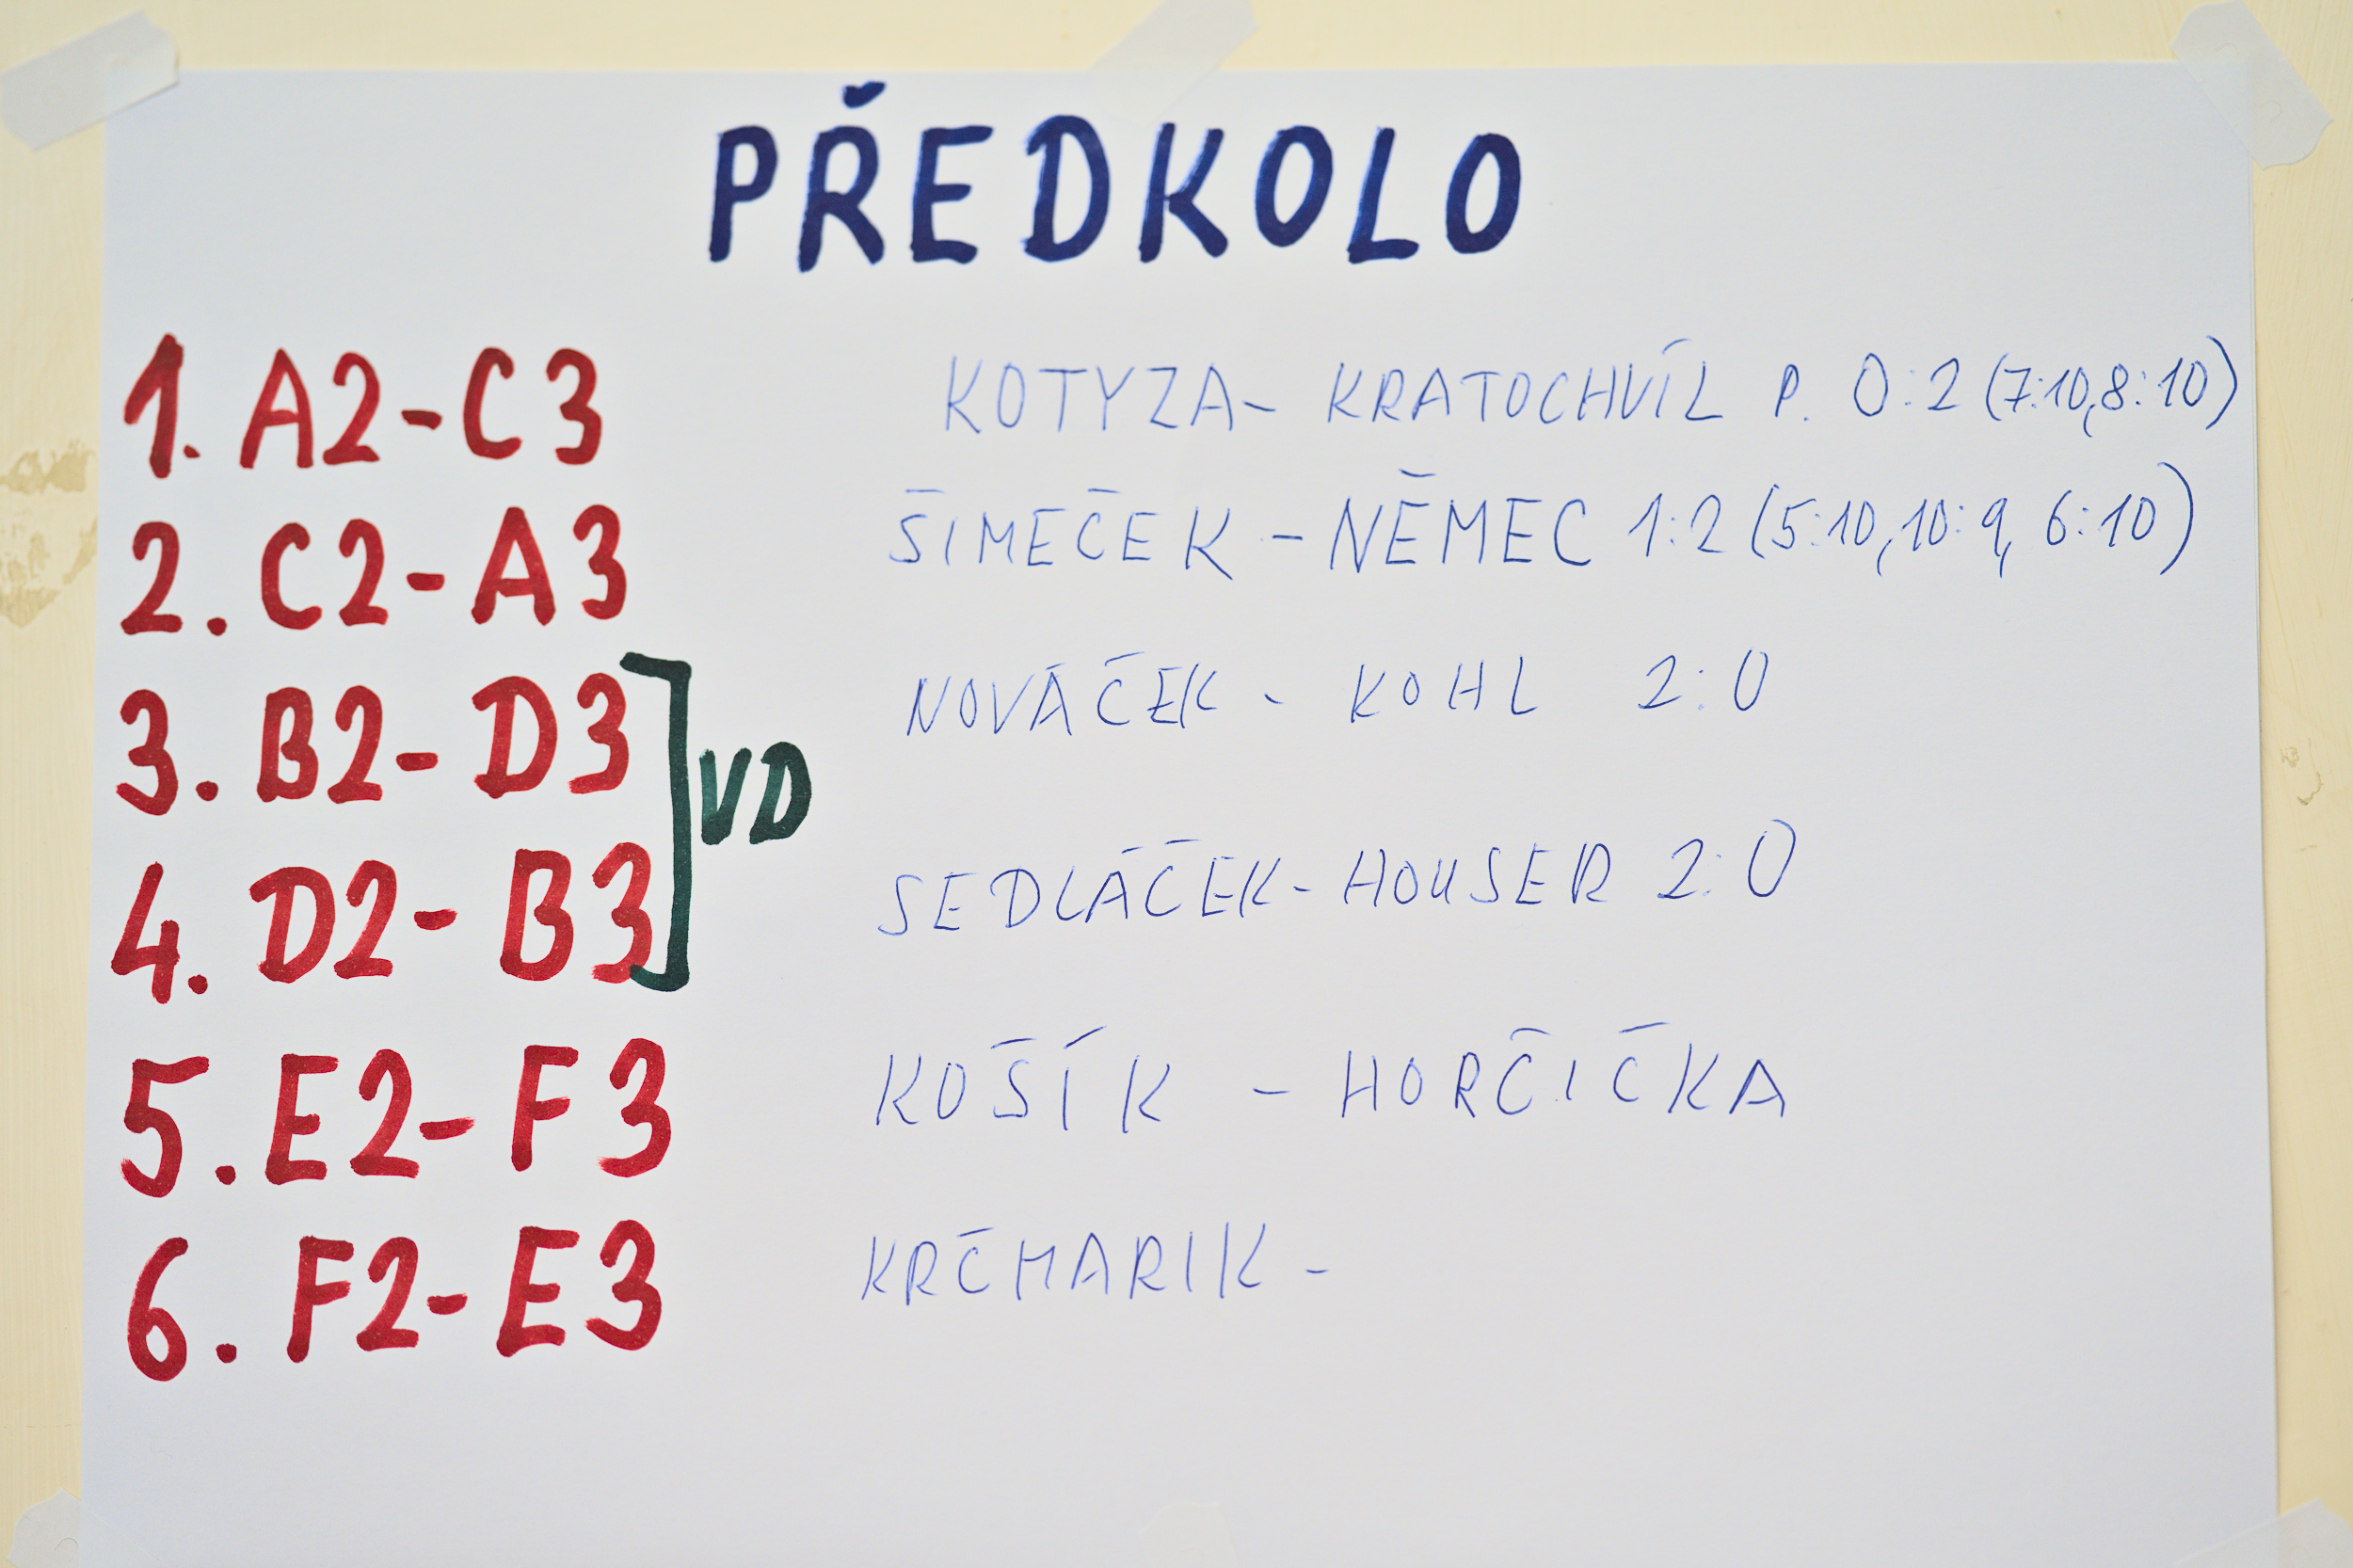 PŘEDKOLO
1. A2-C3 KOTYZA- KRATOCHVÍL P. 0:2 (7:10,8:10)
2. C2-A3 ŠIMEČEK -NĚMEC 1:2 (5:10,10:9, 6:10)
3. B2-D3 NOVÁČEK - KOHL 2:0
VD
4. D2-B3 SEDLÁČEK-HOUSER 2:0
5. E2-F3 KOŠÍK - HORČIČKA
6. F2-E3 KRČMARIK -